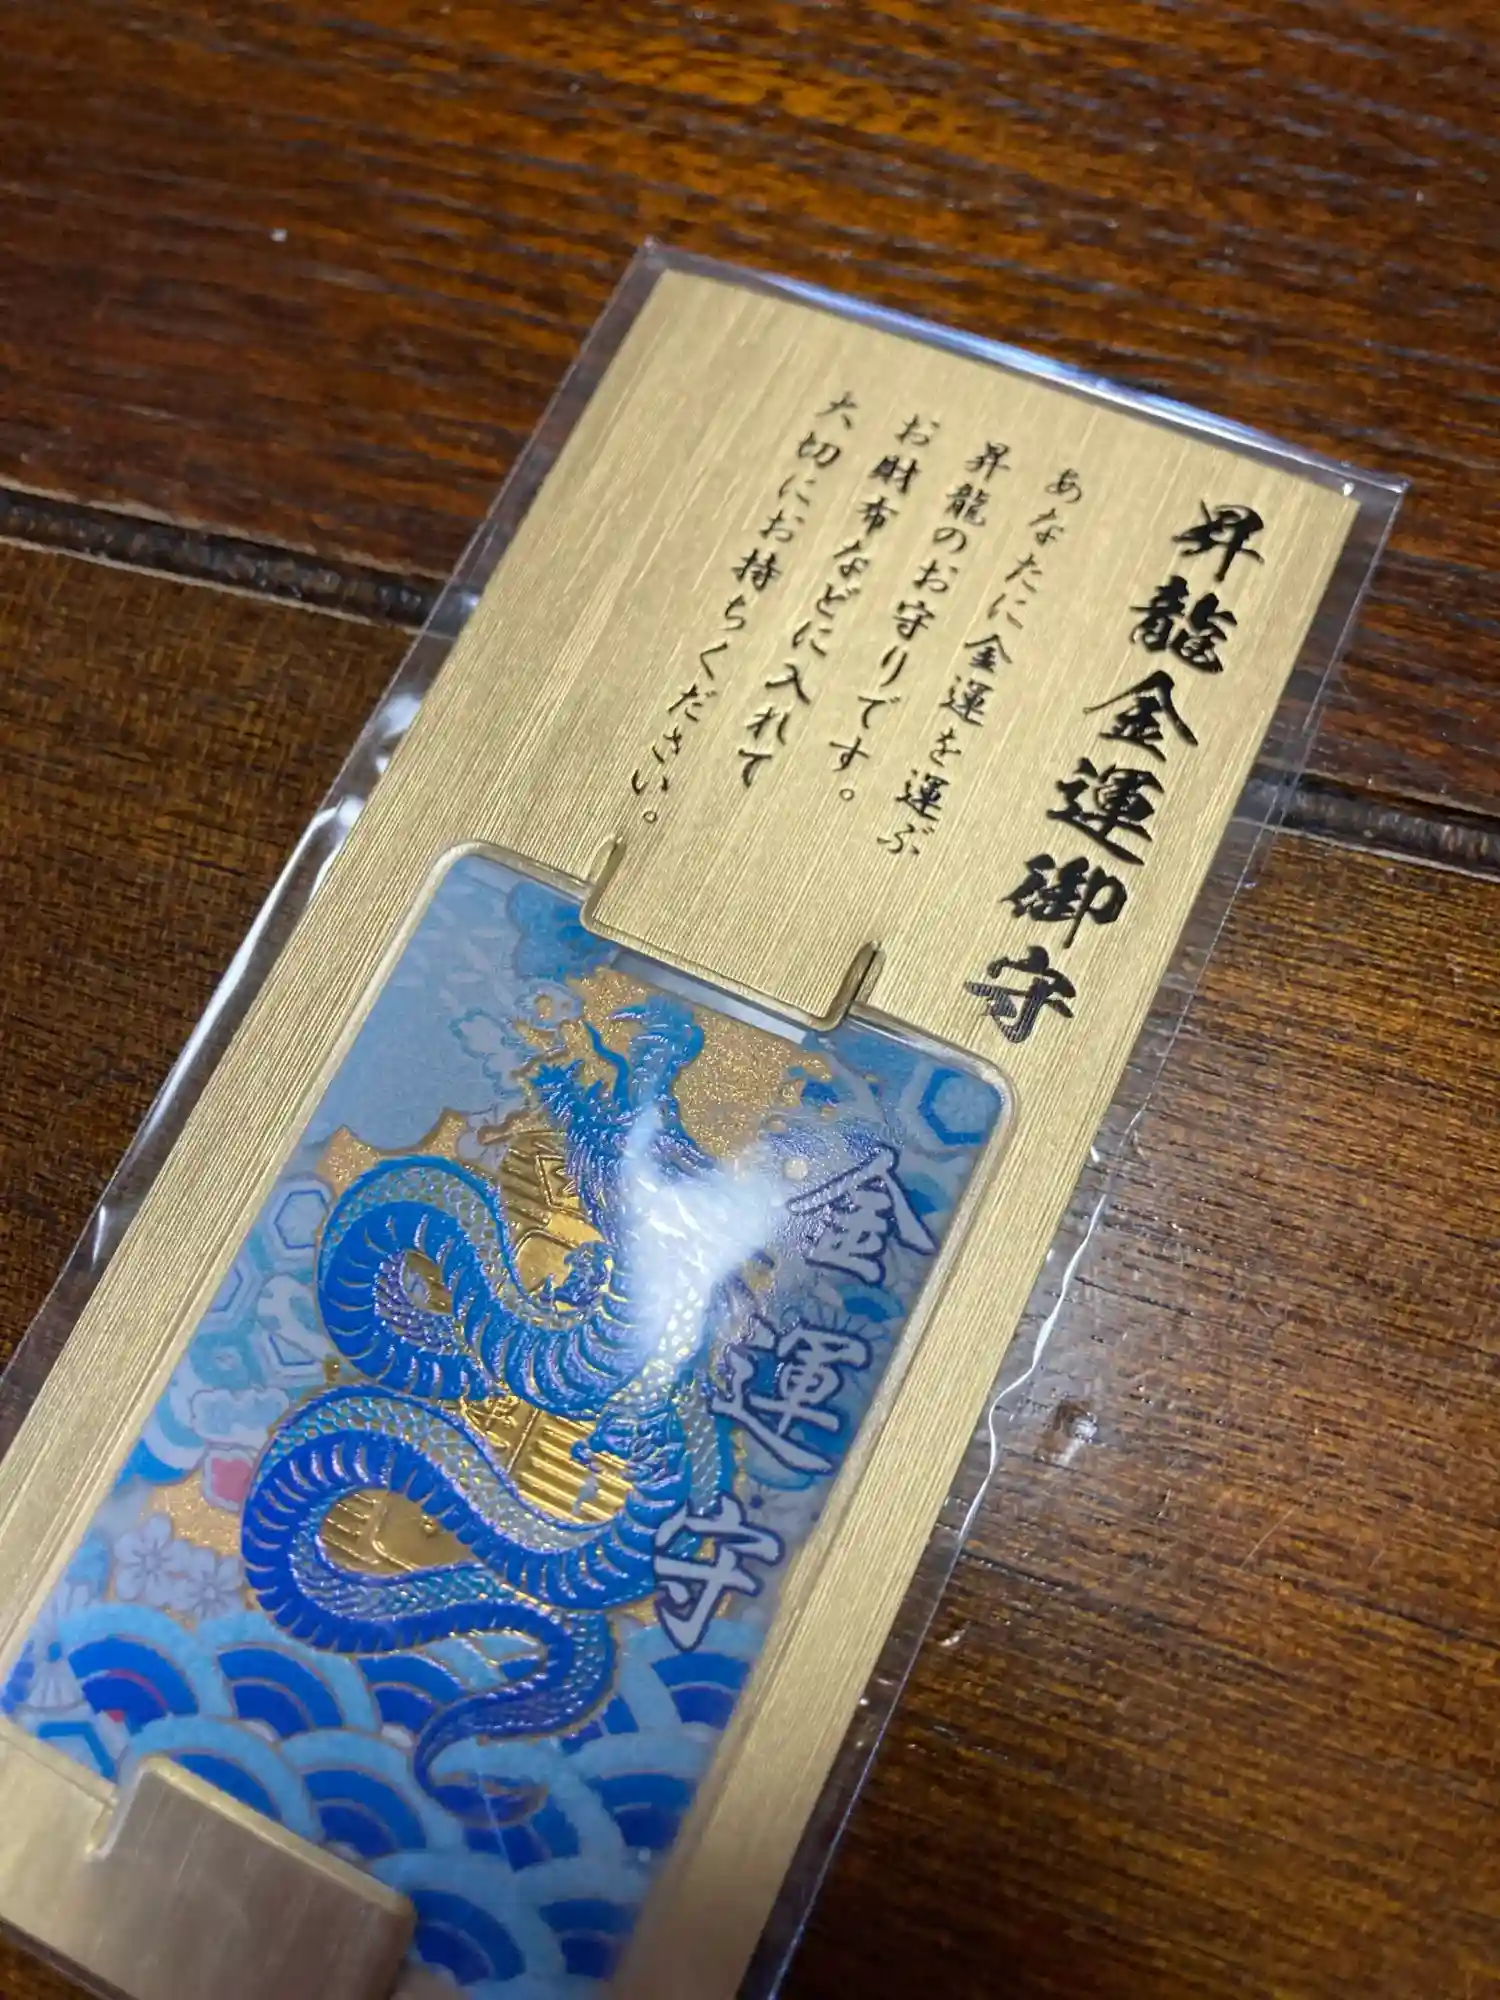 昇龍金運御守
あなたに金運を運ぶ
昇龍のお守りです。
お財布などに入れて
大切にお持ちください。
金運守